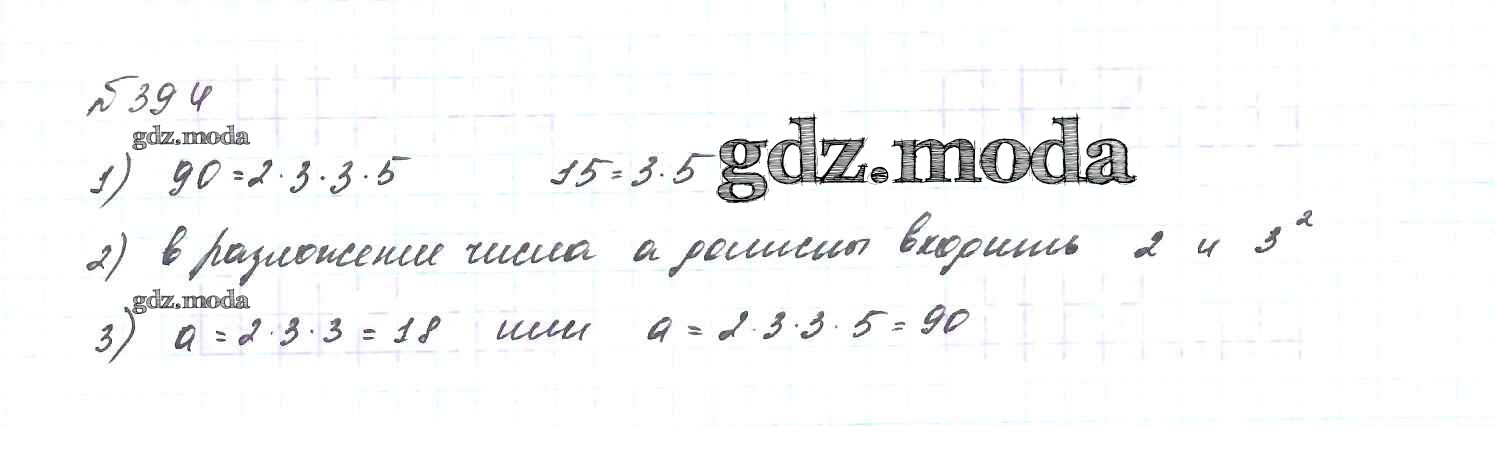 №394
gdz.moda
1) 90=2·3·3·5 15=3·5 gdz.moda
2) в разложение числа а должны входить 2 и 3²
gdz.moda
3) а=2·3·3=18 или а=2·3·3·5=90